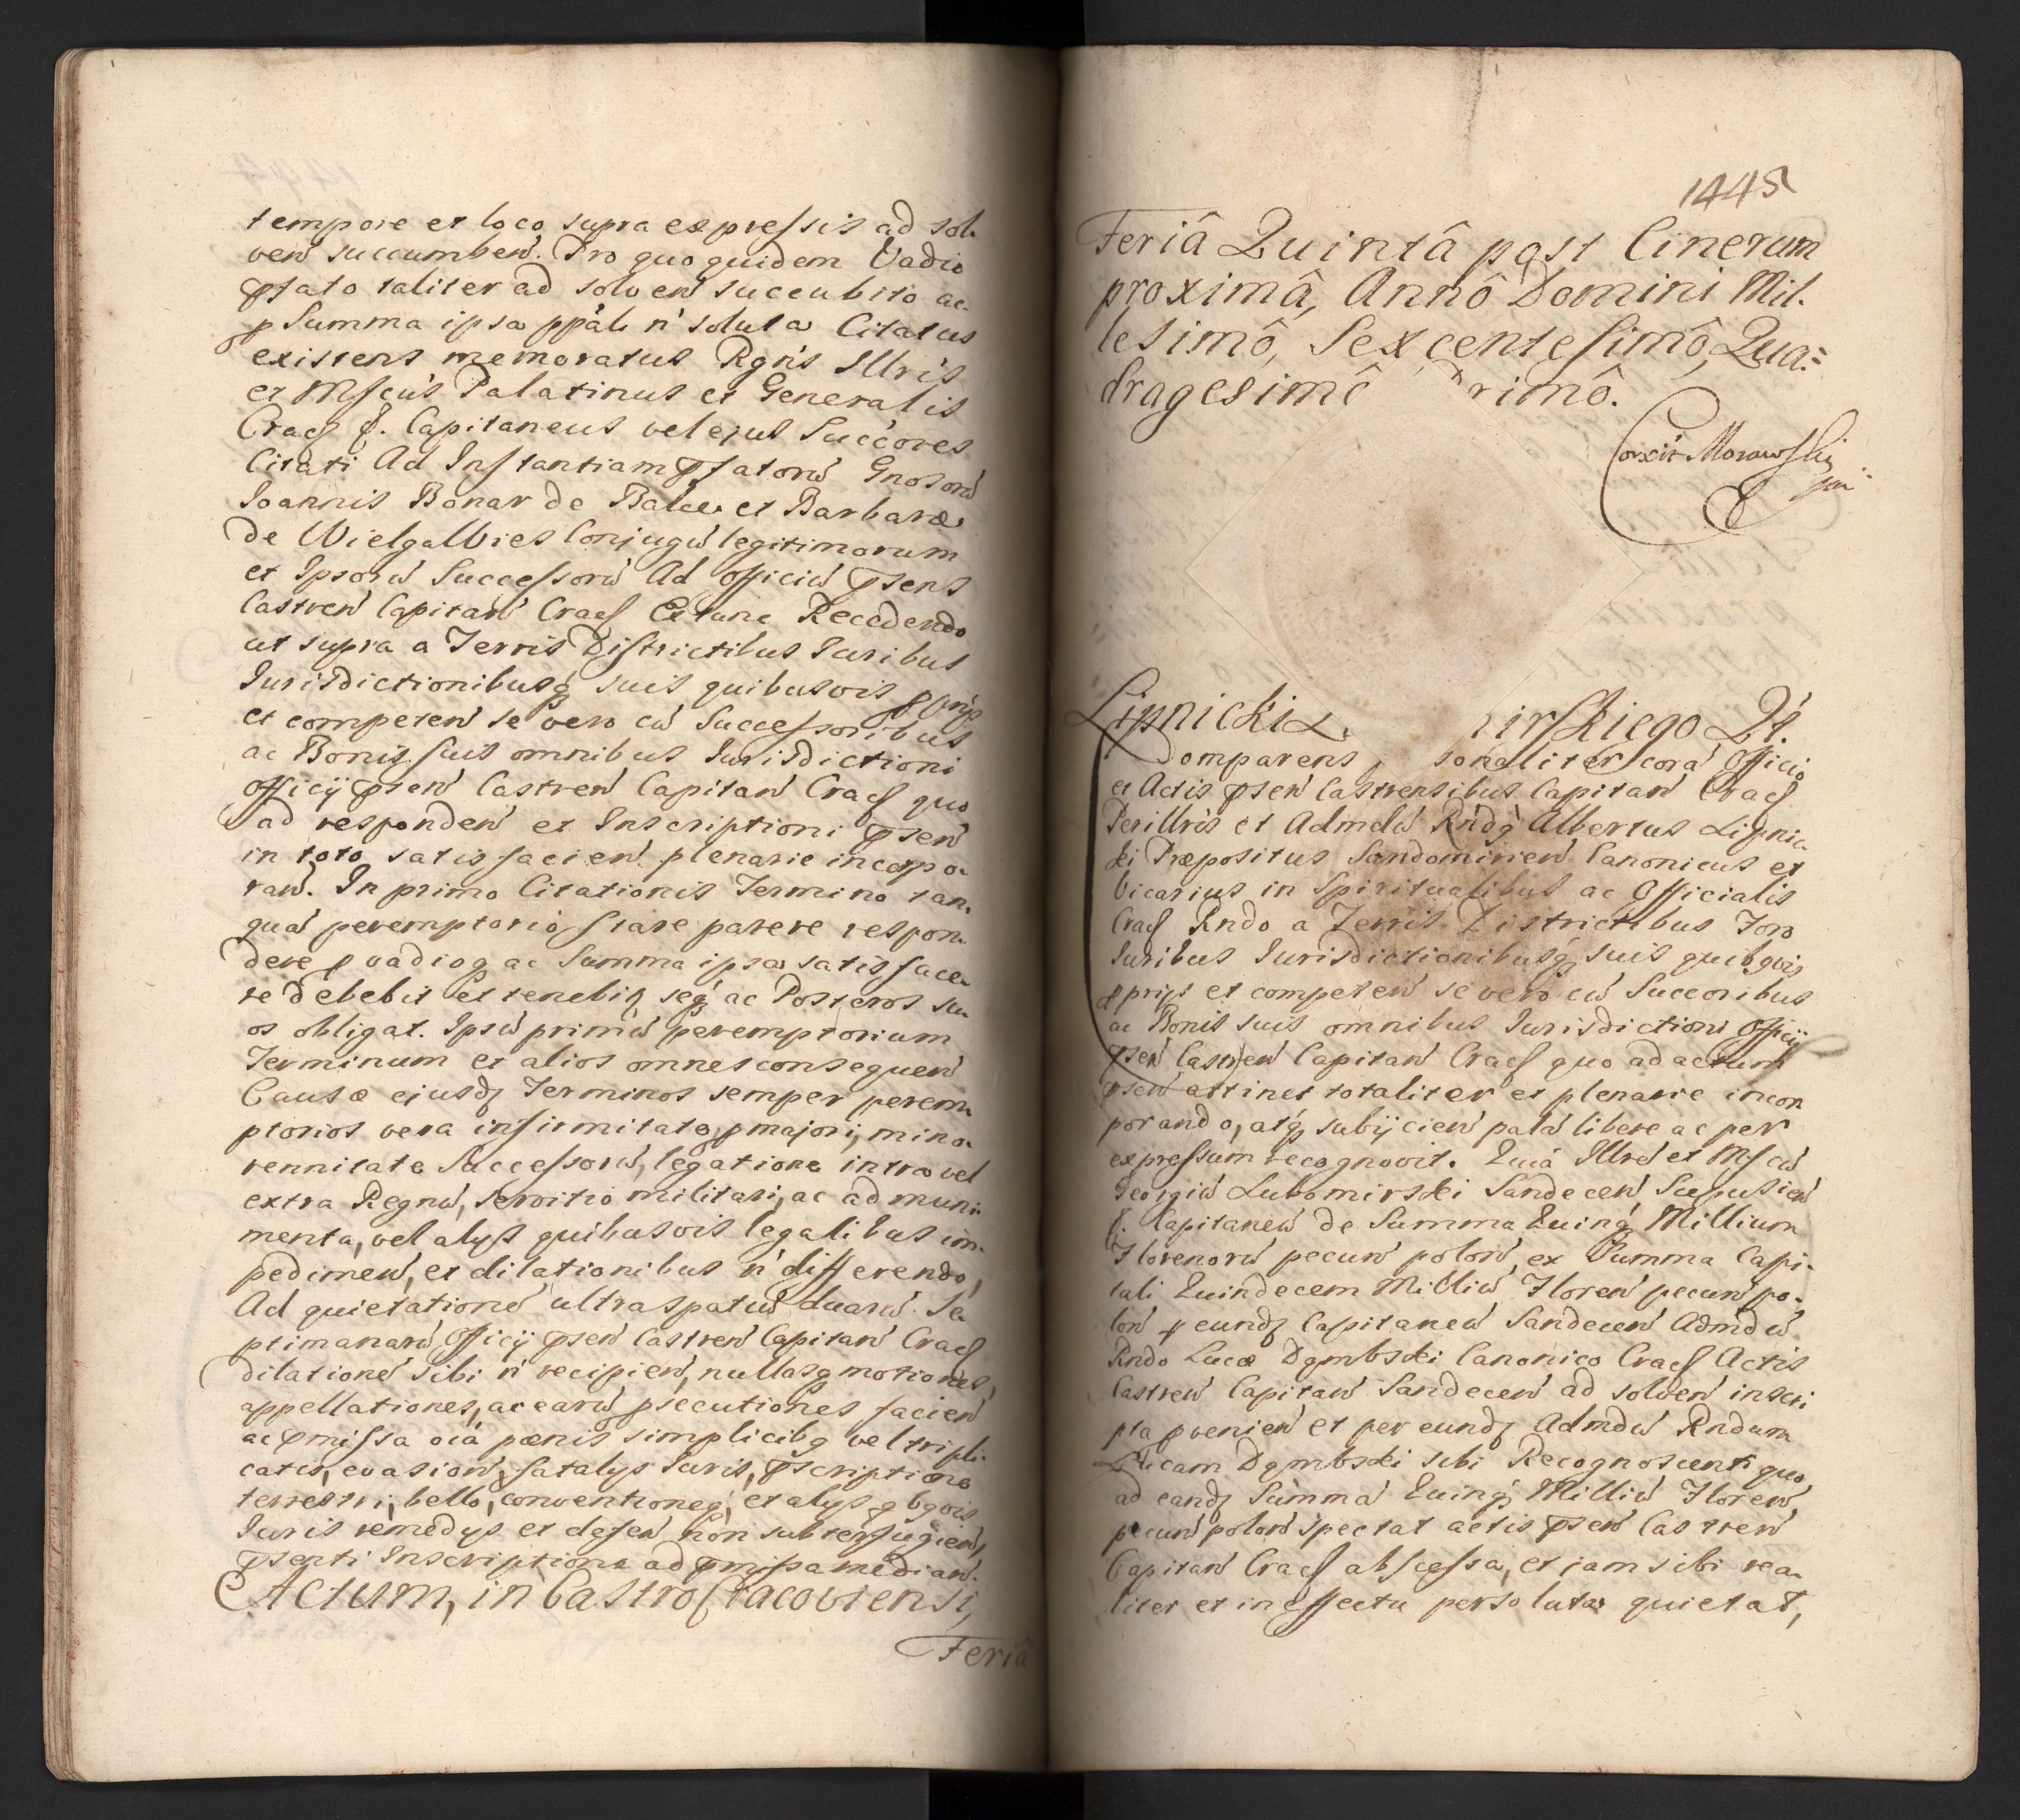 tempore et loco supra expressis ad sol-
ven succumben. Pro quo quidem Vadio
pfato taliter ad solven succubito ac
p Summa ipsa ppali n soluta Citatus
existens memoratus Rgns Illris
et Mfcus Palatinus et Generalis
Cracs &. Capitaneus vel ejus Succores
Citati Ad Instantiam pfatorū Gnosorū
Ioannis Bonar de Balice et Barbaræ
de Wielgalbies Conjugū legitimorum
et Ipsorū Successorū Ad officiū psens
Castren Capitan Cracs Extunc Recedendo
ut supra a Terris Districtibus Iuribus
Iurisdictionibusq suis quibusvis pprijs
et competen se vero cū Successoribus
ac Bonis suis omnibus Iurisdictioni
officij psen Castren Capitan Cracs quo
ad responden et Inscriptioni psen
in toto satisfacien plenarie incorpo-
ran. In primo Citationis Termino tan-
quā peremptorio stare parere respon-
dere p vadioq ac Summa ipsa satisface-
re debebit et tenebit seq ac Posteros su-
os obligat. Ipsū primū peremptorium
Terminum et alios omnes consequen
Causæ ejusdz Terminos semper perem-
ptorios vera infirmitate, p majori, mino-
rennitate Successorū, legatione intra vel
extra Regnū, servitio militari, ac ad muni-
menta, vel alijs quibusvis legalibus im-
pedimen, et dilationibus n differendo,
Ad quietationē ultra spatiū duarū Se-
ptimanarū officij psen Castren Capitan Cracs
dilationē sibi n recipien, nullasq motiones,
appellationes, ac earū psecutiones facien
ac pmissa oiā pœnis simplicibq vel tripli-
catis, evasion, fatalijs Iuris, pscriptione
terrestri, bello, conventioneq, et alijs qbqvis
Iuris remedijs et defen non subterfugien,
psenti Inscriptione ad pmissa median.
Actum, in Castro Cracoviensi,
Feriâ
1445
Feriâ Quintâ post Cinerum
proximâ, Annô Domini Mil-
lesimô, Sexcentesimô, Qua-
dragesimô rimô.
Corxit Morawski
Lipnicki L. irskiego Qt.
Comparens sonaliter corā Officio
et Actis psen Castrensibus Capitan Cracs
Perillris et Admdū Rndq Albertus Lipnic-
ki Præpositus Sandomirien Canonicus et
Vicarius in Spiritualibus ac Officialis
Cracs Rndo a Terris Districtibus Foro
Iuribus Iurisdictionibusq suis quibqvis
pprijs et competen se vero cū Succoribus
ac Bonis suis omnibus Iurisdictioni Officij
psen Castren Capitan Cracs quo ad actum
psen attinet totaliter et plenarie incor
porando, atq subijcien palā libere ac per
expressum recognovit. Quiā Illrē et Mfcū
Georgiū Lubomirski Sandecen Scepusien
&. Capitaneū de Summa Quinq Millium
Florenorū pecun polon, ex Summa Capi-
tali Quindecem Milliū Floren pecun po-
lon p eundz Capitaneū Sandecen Admdū
Rndo Lucæ Dąmbski Canonico Cracs Actis
Castren Capitan Sandecen ad solven inscri
pta pvenien et per eundz Admdū Rndum
Lucam Dąmbski sibi Recognoscenti quo
ad eandz Summā Quinq Milliū Floren,
pecun polon spectat actis psen Castren
Capitan Cracs abscessa, et iam sibi rea-
liter et in effectu persoluta quietat,